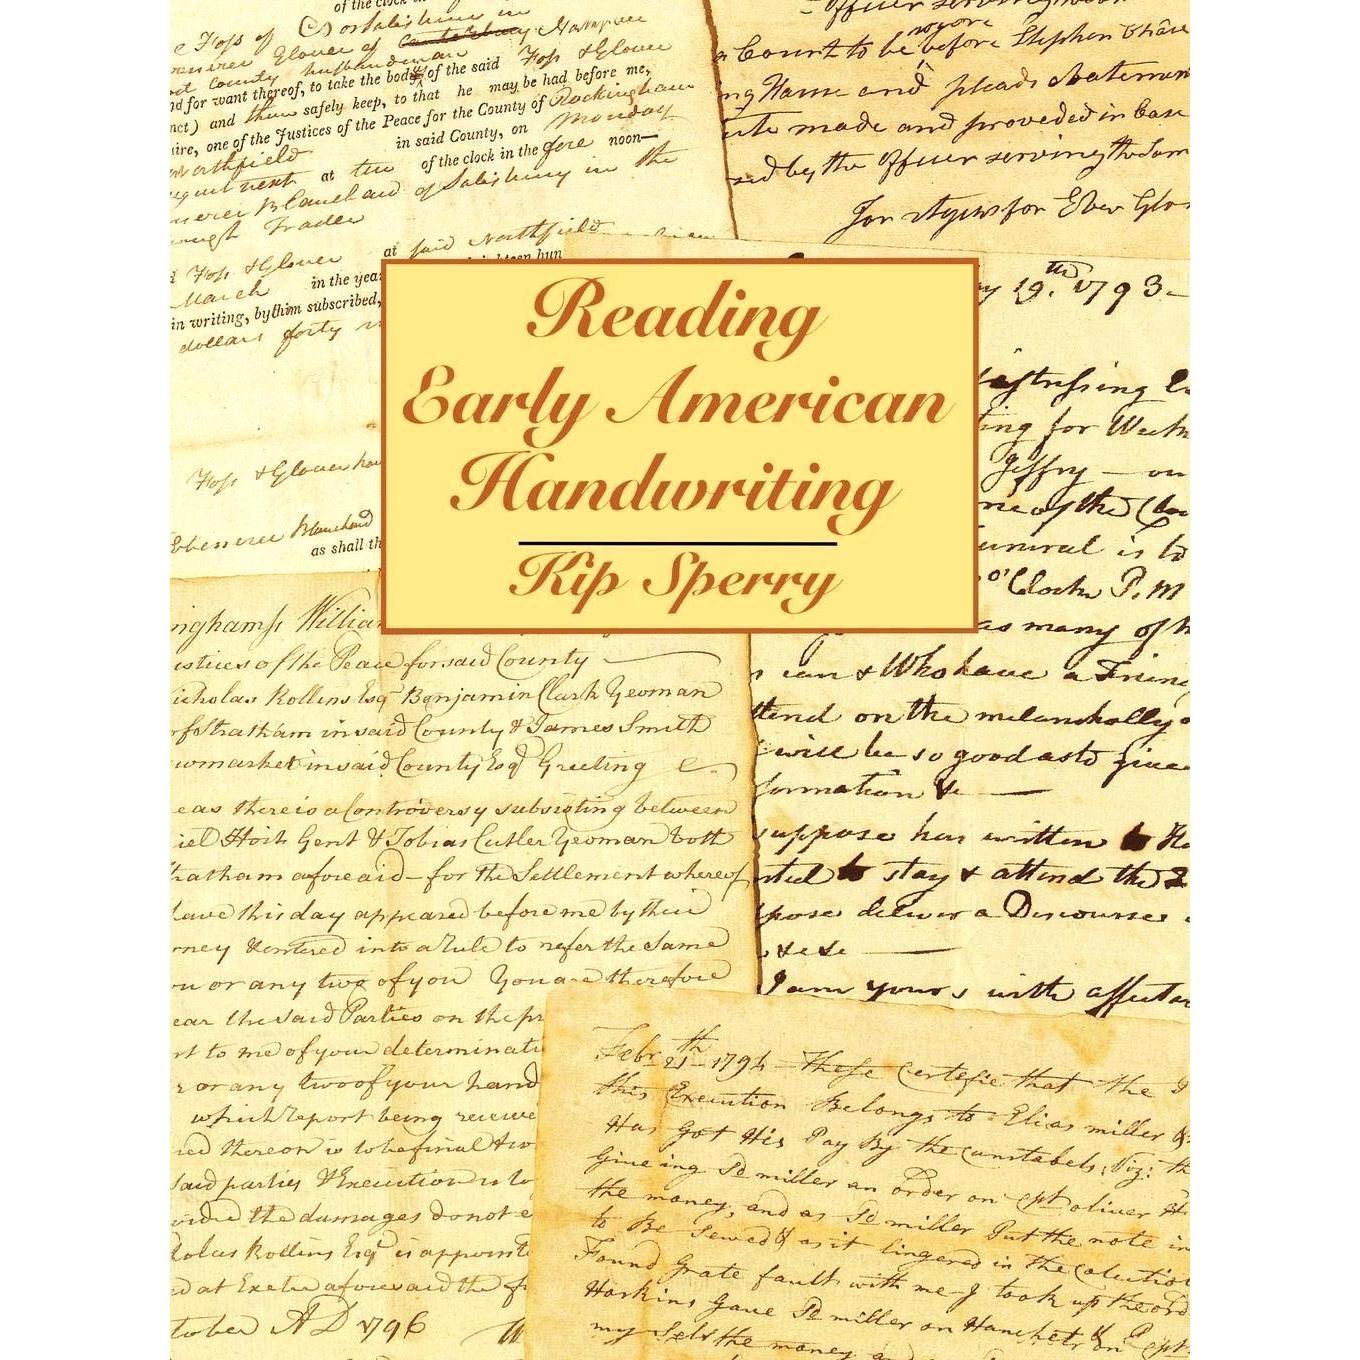 of the clock in
e Foss of Salisbury in
Glover of Canterbury
County husbandman
nd for want thereof, to take the body of the said Foss & Glover
nct) and them safely keep, to that he may be had before me,
ire, one of the Justices of the Peace for the County of Rockingham
Northfield in said County, on Monday
at ten of the clock in the fore noon—
of Salisbury in the
Trader
at said Northfield
Foss & Glover in the year
March
in writing, by him subscribed,
dollars forty
Foss & Glover
Ebenezer Blanchard
as shall th
Officer serving
a Count to be before Stephen Chase
ng Name and pleads abatement
made and proveded in Case
by the Officer serving the Sam
for Eben Glo
19.th 1793—
Reading
Early American
Handwriting
Kip Sperry
distressing
ing for
Jeffry — on
one of the
funeral is to
o'Clock P.M
as many of
can & Who have a Frien
ttend on the melancholly
will be so good as to give
formation &c —
suppose has written to
nted to stay & attend the
pose deliver a Discourse
I am yours with affection
ingham ss William
ustices of the Peace for said County
icholas Rollins Esqr Benjamin Clark Yeoman
of Stratham in said County & James Smith
ewmarket in said County Esqr Greeting
eas there is a Controversy subsisting between
iel Hoit Gent & Tobias Cutler Yeoman both
tratham aforesaid — for the Settlement whereof
have this day appeared before me by their
rney & entered into a Rule to refer the Same
ou or any two of you You are therefore
ear the said Parties on the pr
rt to me of your determinati
or any two of your hand
which Report being receive
ied thereon is to be final
said parties & Execution is to
the damages do not e
holas Rollins Esqr is appointe
d at Exeter aforesaid the fi
tober AD 1796
Febr 21th 1794 These Certefie that the
this Execution Belongs to Elias miller
Has Got His Pay By the Cunstabels, Viz: th
Giveing Sd miller an order on Cpt oliver
the money, and as Sd miller Put the note in
to Be Sewed & as it lingered in the Colection
Found Grate fault with me I took up the ord
Harkins Gave Sd miller on Hanchet
my Self the money